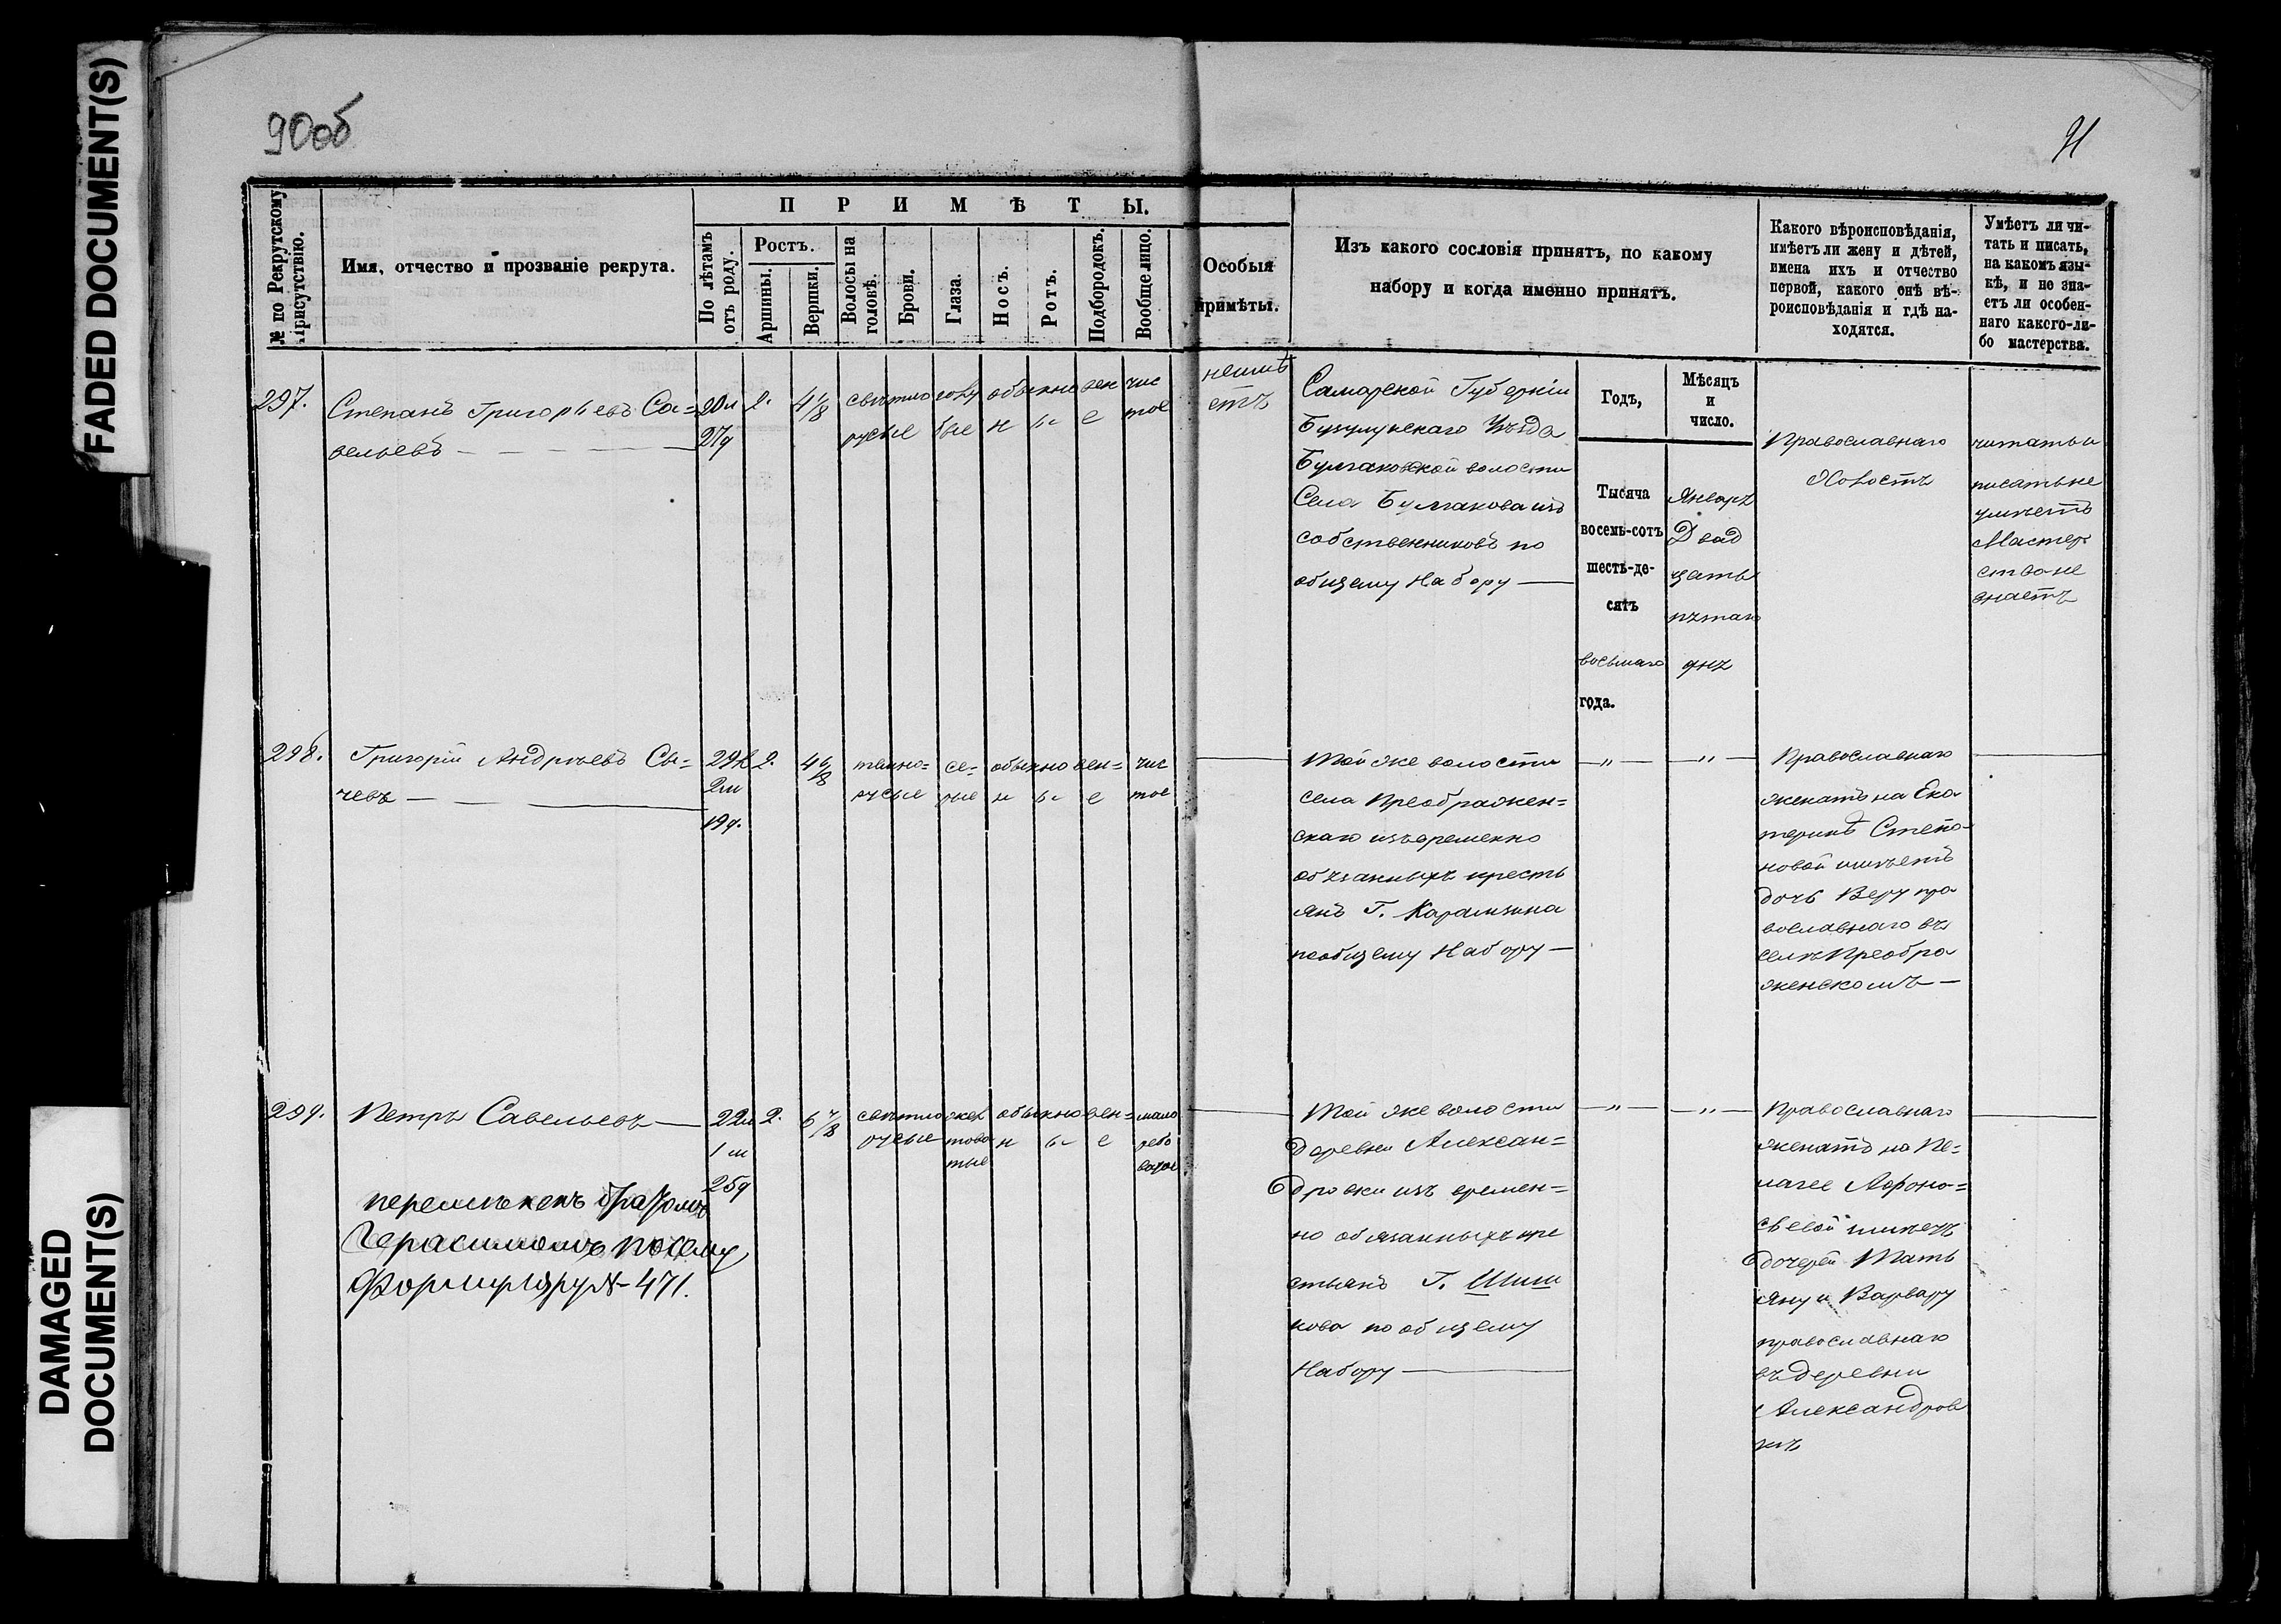 FADED DOCUMENT(S)
DAMAGED
DOCUMENT(S)
90об
91
№ по Рекрутскому
Присутствію.
Имя, отчество и прозваніе рекрута.
ПРИМѢТЫ.
По лѣтамъ
отъ роду.
Ростъ.
Аршины.
Вершки.
Волосы на
головѣ.
Брови.
Глаза.
Носъ.
Ротъ.
Подбородокъ.
Вообще лицо.
Особыя
примѣты.
Изъ какого сословія принятъ, по какому
набору и когда именно принятъ.
Какого вѣроисповѣданія,
имѣетъ ли жену и дѣтей,
имена ихъ и отчество
первой, какого онѣ вѣ-
роисповѣданія и гдѣ на-
ходятся.
Умѣетъ ли чи-
тать и писать,
на какомъ язы-
кѣ, и не зна-
етъ ли особен-
наго какого-ли-
бо мастерства.
297.
Степанъ Григорьевъ Са=
вельевъ
20л
27д
2.
4 1/8
свѣтло
русые
голу
бые
обыкновен
н ы е
чис
тое
неимѣ
етъ
Самарской Губерніи
Бузулукскаго Уѣзда
Булгаковской волости
Села Булгакова изъ
собственниковъ по
общему Набору
Годъ,
Тысяча
восемь-сотъ
шесть-де-
сятъ
восьмаго
года.
Мѣсяцъ
и
число.
Январъ
Двад
цать
пѣтаго
днѣ
Православнаго
Холостъ
читать и
писать не
умѣетъ
Мастер
ство не
знаетъ
298.
Григорій Андрѣевъ Сы=
чевъ
29л
2м
19д.
2.
4 6/8
темно=
русые
се=
рые
обыкновен=
н ы е
чис
тое
Той же волости
села Преображен=
скаго изъ временно
обязанныхъ кресть
янъ Г. Карамзина
пообщему Набору
"
"
Православнаго
женатъ на Ека
теринѣ Степа-
новой имѣетъ
дочь Веру пра
вославнаго въ
селѣ Преобра
женскомъ
299.
Петръ Савельевъ
22л
1м
25д
2.
6 4/8
свѣтло
русые
жел
това
тые
обыкновен=
н ы е
мало
ребо
ватое
перемѣненъ братомъ
Герасимомъ посему
Формуляру № 471.
Той же волости
деревни Алексан=
дровки изъ времен=
но обязанныхъ кре
стьянъ Г. Шиш
кова по общему
Набору
"
"
Православнаго
женатъ на Пе=
лагее Афона=
сьевой имѣетъ
дочерей Тать
яну и Варвару
православнаго
въ деревни
Александров
кѣ